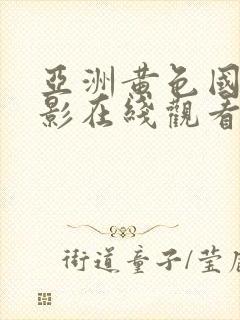 亞洲黃色國
影在綫觀看
街道童子/莹